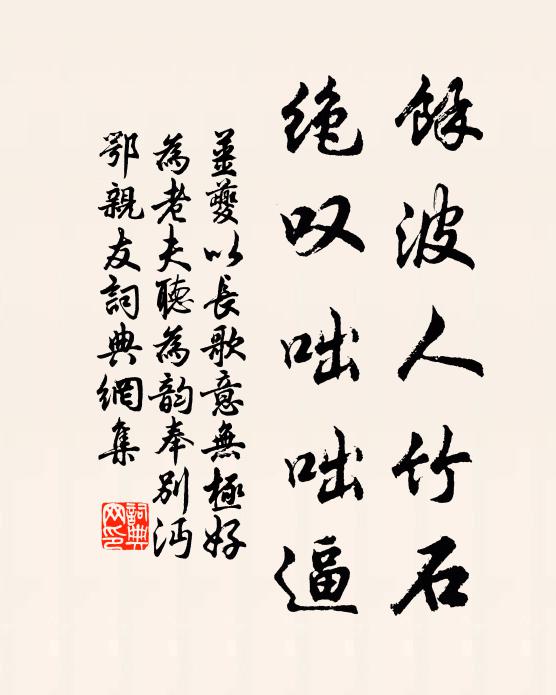 餘波人竹石
绝叹咄咄逼
姜夔以長歌意無極好
為老夫聽為韵奉别沔
鄂親友詞典網集
詞典网印